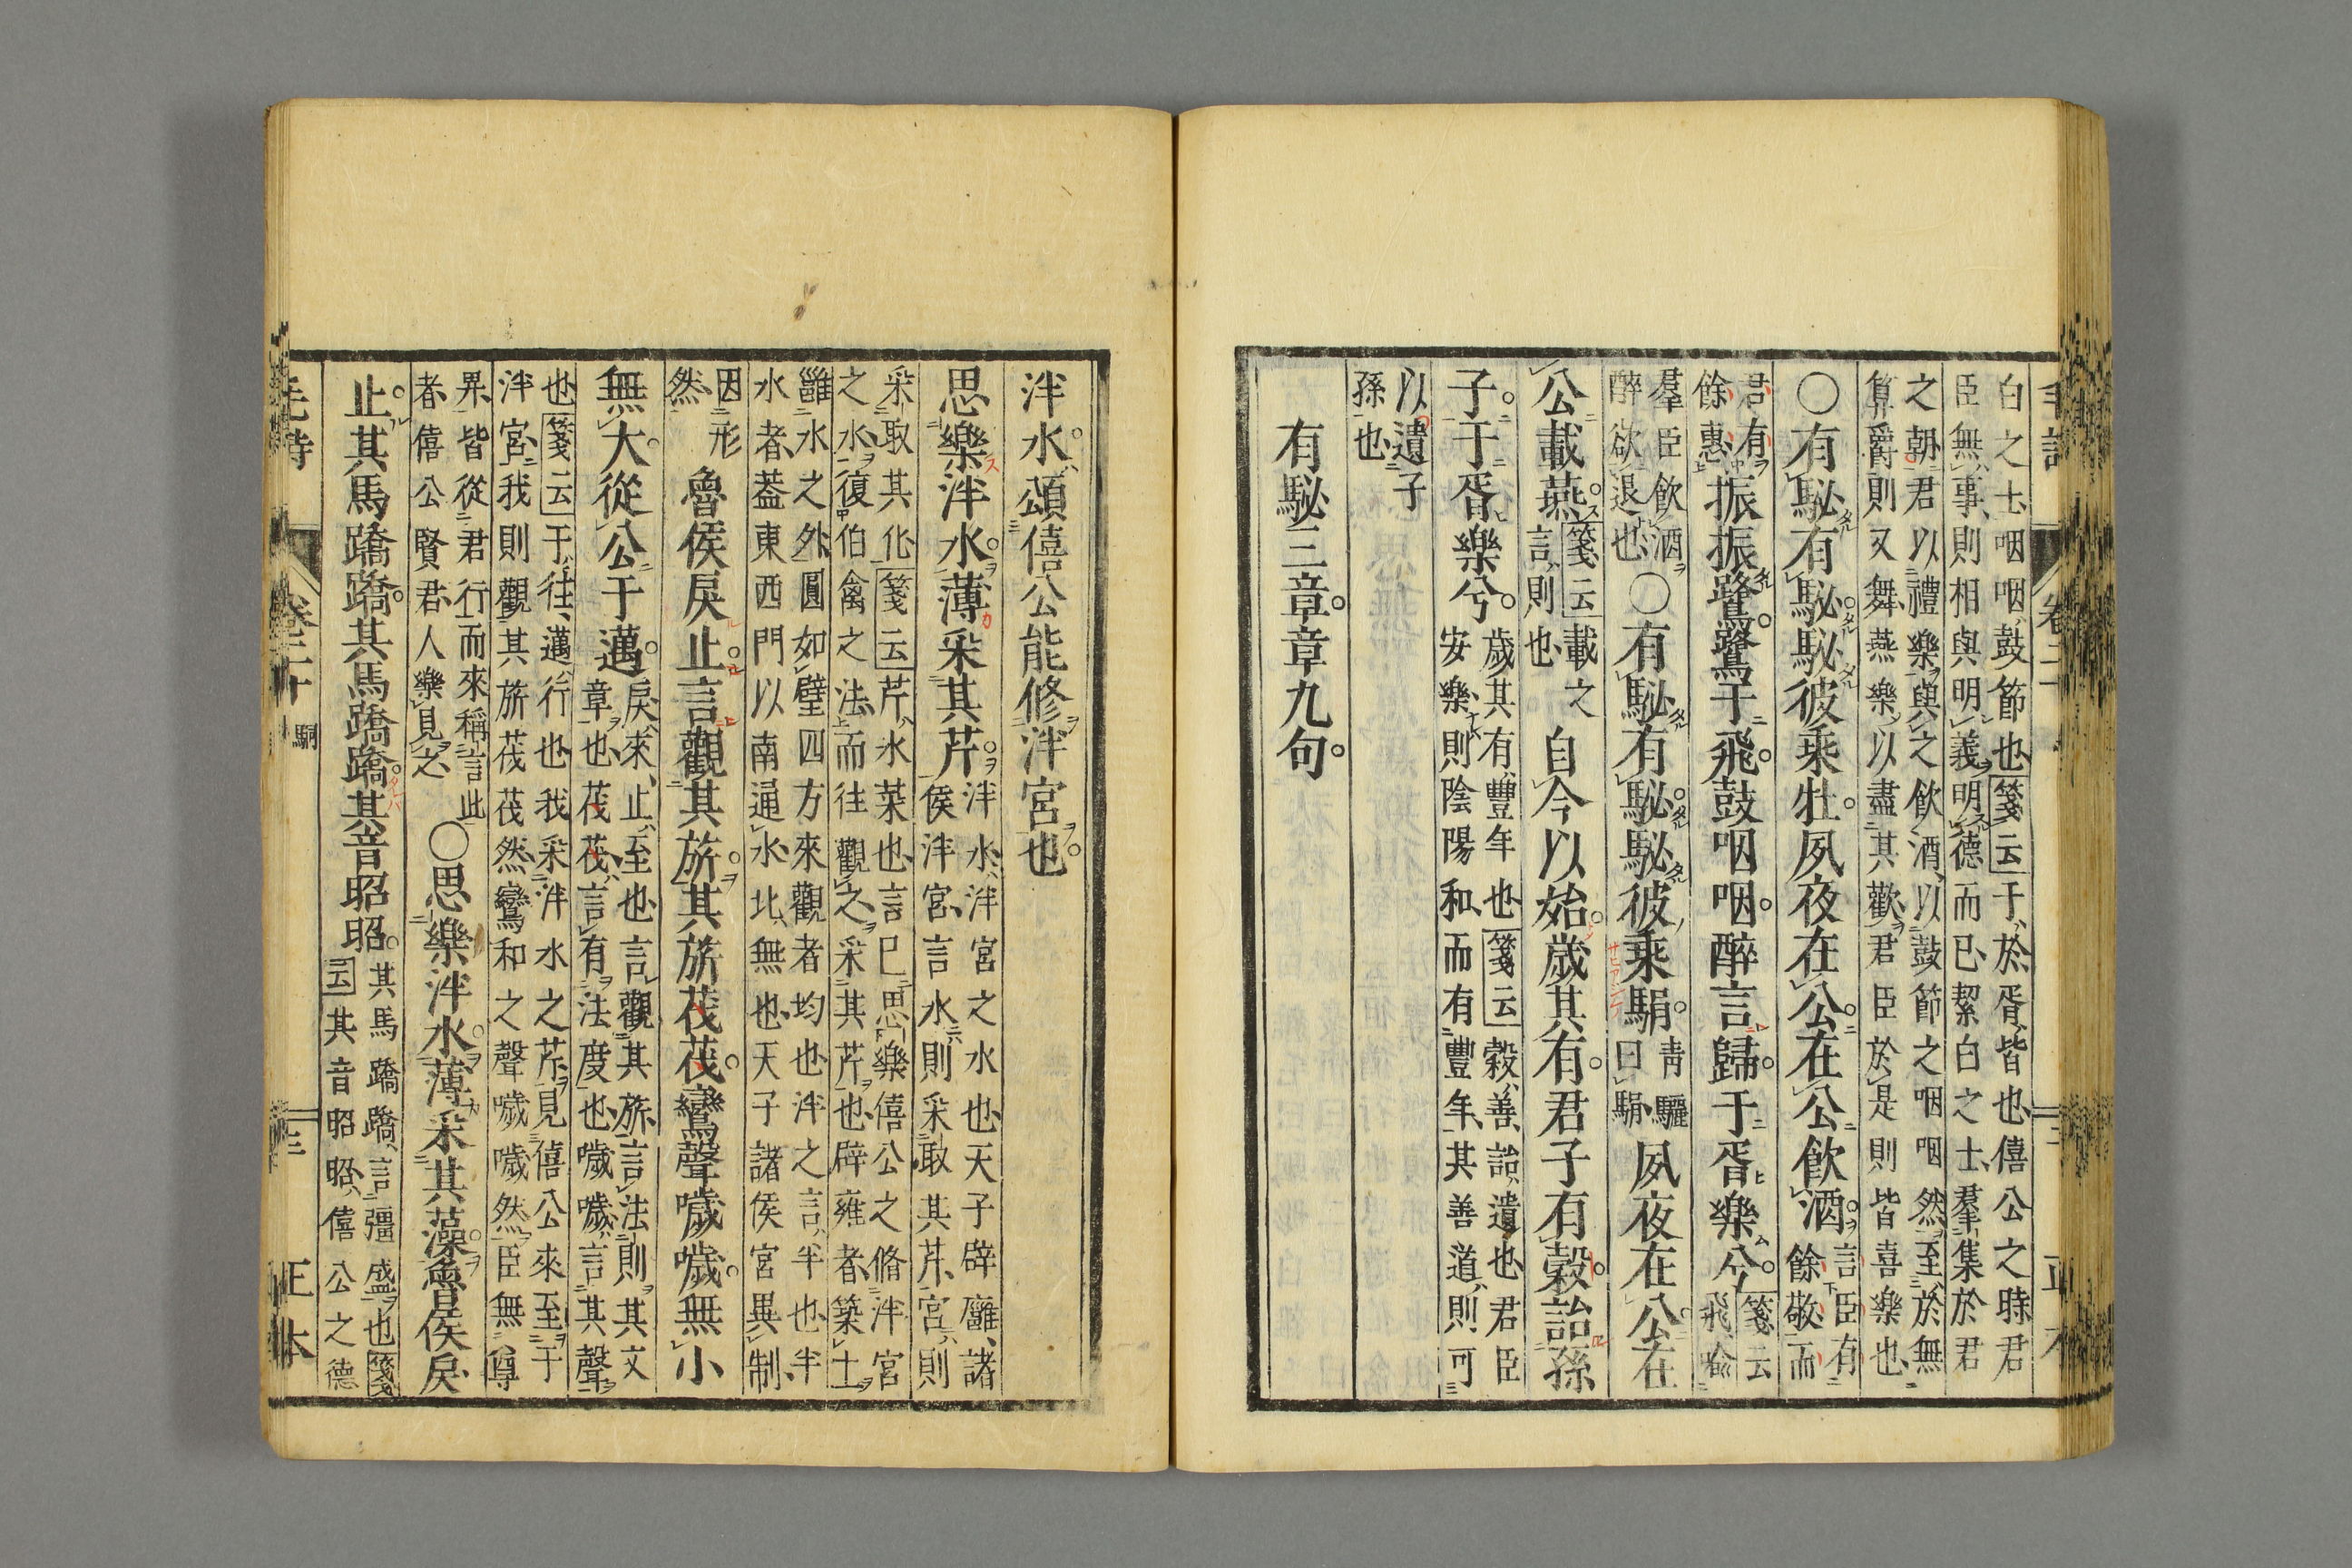 白之士咽咽鼓節也箋云于於胥皆也僖公之時君
臣無事則相與明義明德而已絜白之士羣集於君
之朝君以禮樂與之飲酒以鼓節之咽咽然至於無
算爵則又舞燕樂以盡其歡君臣於是則皆喜樂也
○有駜有駜駜彼乘牡夙夜在公在公飲酒言臣有
餘敬而
君有
餘惠振振鷺鷺于飛鼓咽咽醉言歸于胥樂兮箋云
飛喻
羣臣飲酒
醉欲退也○有駜有駜駜彼乘駽青驪
曰駽夙夜在公在
公載燕箋云載之
言則也自今以始歲其有君子有穀詒孫
子于胥樂兮歲其有豐年也箋云穀善詒遺也君臣
安樂則陰陽和而有豐年其善道則可
以遺子
孫也
有駜三章章九句
泮水頌僖公能修泮宮也
思樂泮水薄采其芹泮水泮宮之水也天子辟廱諸
侯泮宮言水則采取其芹宮則
采取其化箋云芹水菜也言已思樂僖公之脩泮宮
之水復伯禽之法而往觀之采其芹也辟雍者築土
雝水之外圓如璧四方來觀者均也泮之言半也半
水者蓋東西門以南通水北無也天子諸侯宮異制
因形
然魯侯戾止言觀其旂其旂茷茷鸞聲噦噦無小
無大從公于邁戾來止至也言觀其旂言法則其文
章也茷茷言有法度也噦噦言其聲
也箋云于往邁行也我采泮水之芹見僖公來至于
泮宮我則觀其旂茷茷然鸞和之聲噦噦然臣無尊
界皆從君行而來稱言此
者僖公賢君人樂見之○思樂泮水薄采其藻魯侯戾
止其馬蹻蹻其馬蹻蹻其音昭昭其馬蹻蹻言彊盛也箋
云其音昭昭僖公之德